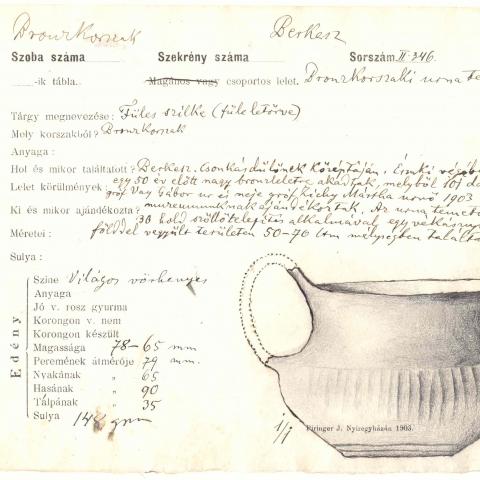 Bronzkorszak Berkesz
Szoba száma Szekrény száma Sorszám II. 346.
-ik tábla. Magános vagy csoportos lelet. Bronzkorszaki urna te
Tárgy megnevezése: Füles szilke (füle letörve)
Mely korszakból? Bronzkorszak
Anyaga:
Hol és mikor találtatott? Berkesz. Csonkásdűlőnek középtáján. Északi végéb
Lelet körülmények: egy 50 év előtt nagy bronzleletre akadtak, melyből 101 da
gróf Vay Gábor ur és neje gróf Zichy Mártha urnő 1903
Ki és mikor ajándékozta? muzeumunknak ajándékoztak. Az urna temető
30 hold szöllőtelepítés alkalmával egy vékony
Méretei: földdel vegyült területen 50-70 ctm mélységben találta
Sulya:
Edény
Szine Világos vörhenyes
Anyaga
Jó v. rosz gyurma
Korongon v. nem
Korongon készült
Magassága 78-65 mm
Peremének átmérője 79 mm.
Nyakának " 65
Hasának " 90
Talpának " 35
Sulya 148 gm
1/1
Piringer J. Nyiregyházán 1903.